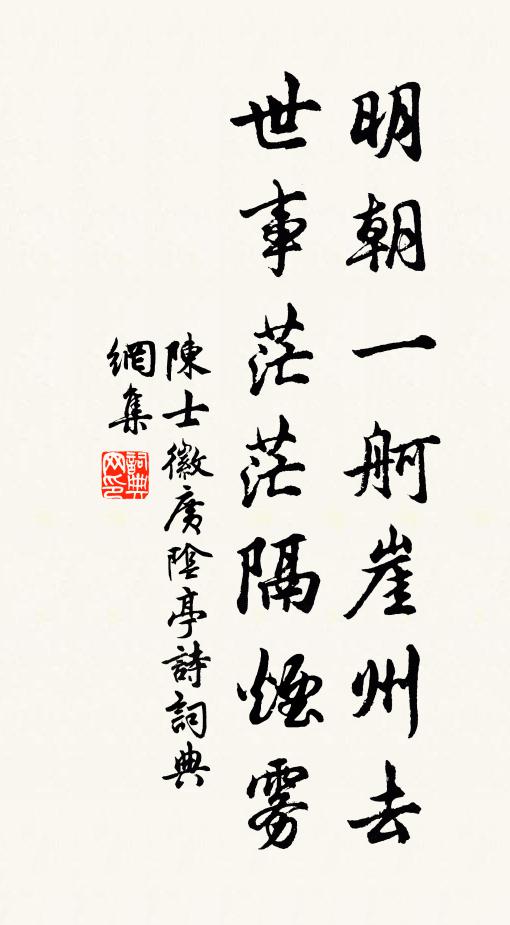 明朝一舸崖州去
世事茫茫隔煙霧
陳士徽廣陰亭詩詞典
網集
詞典網印